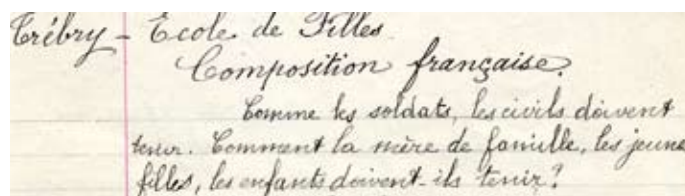 Trébry - École de Filles
Composition française.
Comme les soldats, les civils doivent
tenir. Comment la mère de famille, les jeunes
filles, les enfants doivent-ils tenir ?